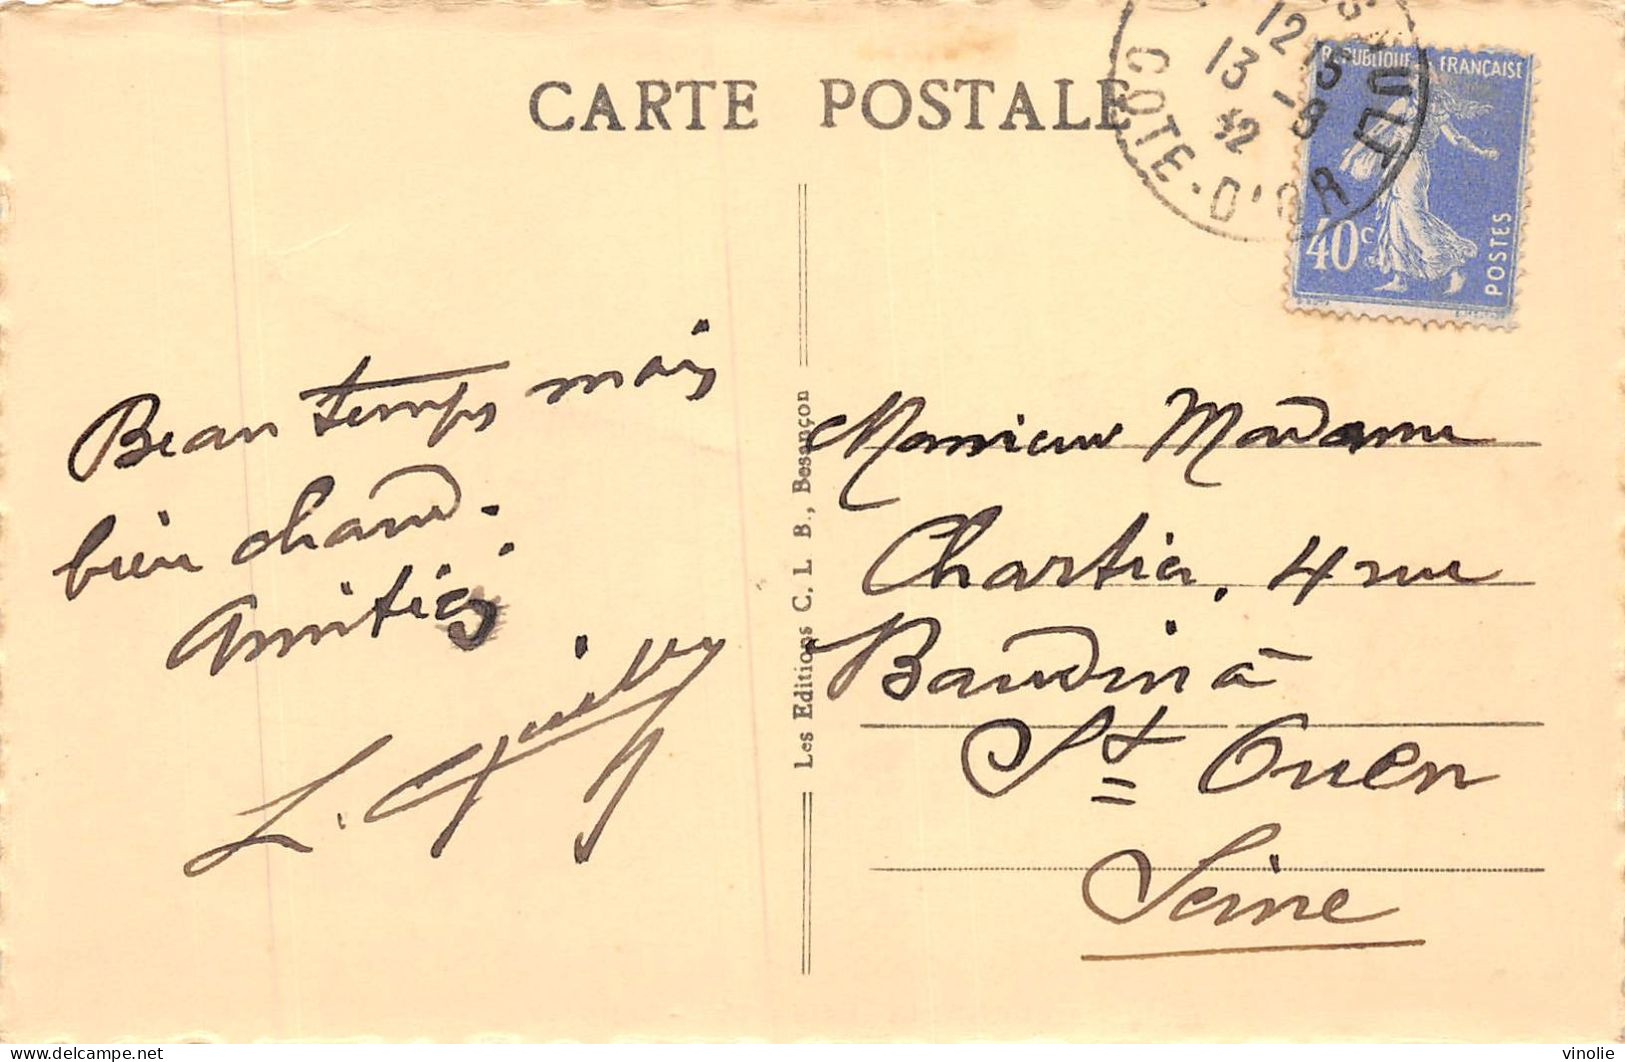 CARTE POSTALE
12 15
13 -8
32
COTE-D'OR
REPUBLIQUE FRANÇAISE
40c
POSTES
Beau temps mais
bien chaud.
Amitiés
L.
Les Editions C. L. B., Besançon
Monsieur Madame
Chartier, 4 rue
Baudin à
St Ouen
Seine
delcampe.net
vinolie